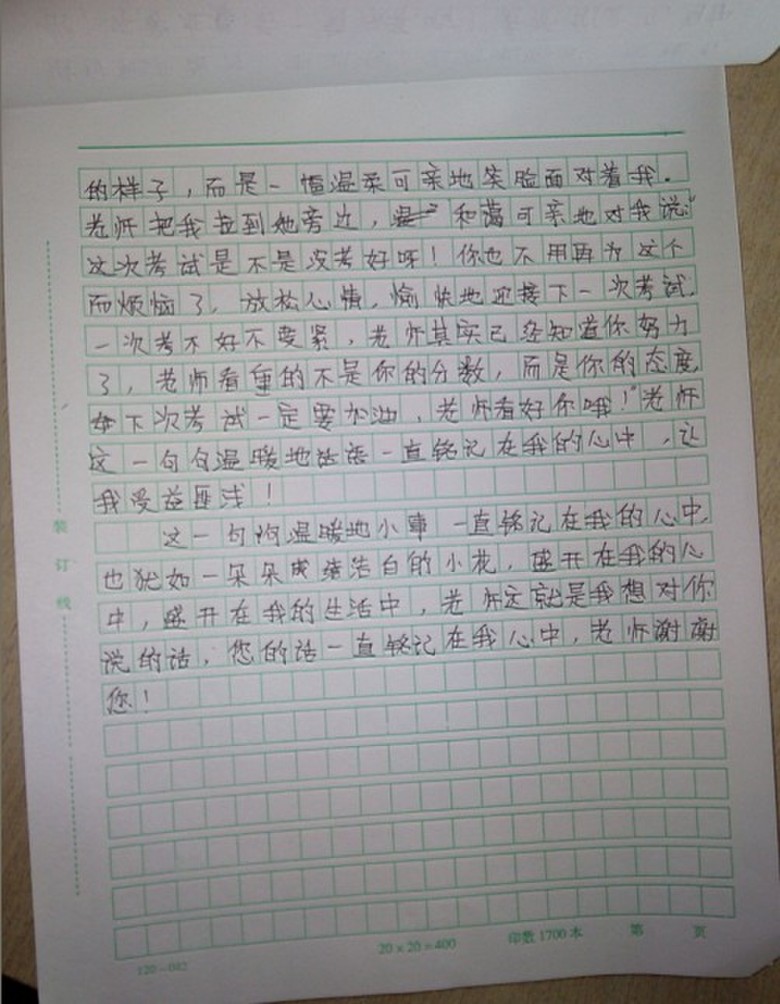 的样子，而是一幅温柔可亲地笑脸面对着我.
老师把我拉到她旁边，和蔼可亲地对我说:“
这次考试是不是没考好呀！你也不用再为这个
而烦恼了，放松心情，愉快地迎接下一次考试,
一次考不好不要紧，老师其实已经知道你努力
了，老师看重的不是你的分数，而是你的态度,
下次考试一定要加油，老师看好你哦！”老师
这一句句温暖地话语一直铭记在我的心中，让
我受益匪浅！
这一句句温暖地小事一直铭记在我的心中,
也犹如一朵朵洁白的小花，盛开在我的心
中，盛开在我的生活中，老师这就是我想对你
说的话，您的话一直铭记在我心中，老师谢谢
您！
装订线
120-042
20×20=400
印数1700本
第 页